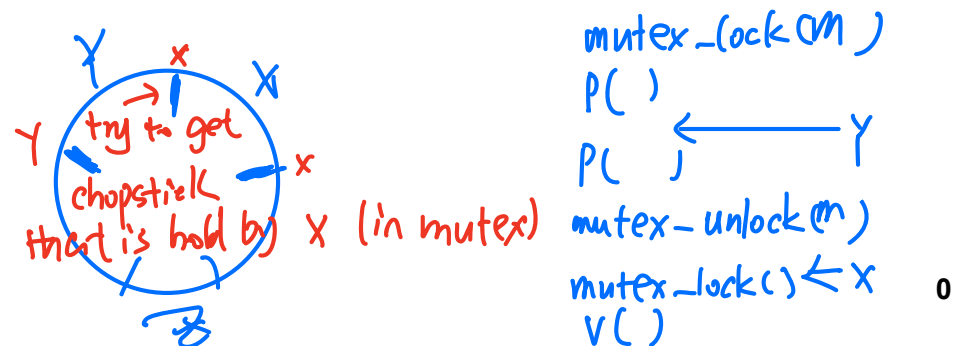 Y
x
X
Y
try to get
x
chopstick
that is hold by X (in mutex)
mutex_lock(m)
P( )
Y
P( )
mutex_unlock(m)
mutex_lock() ← X
V()
0